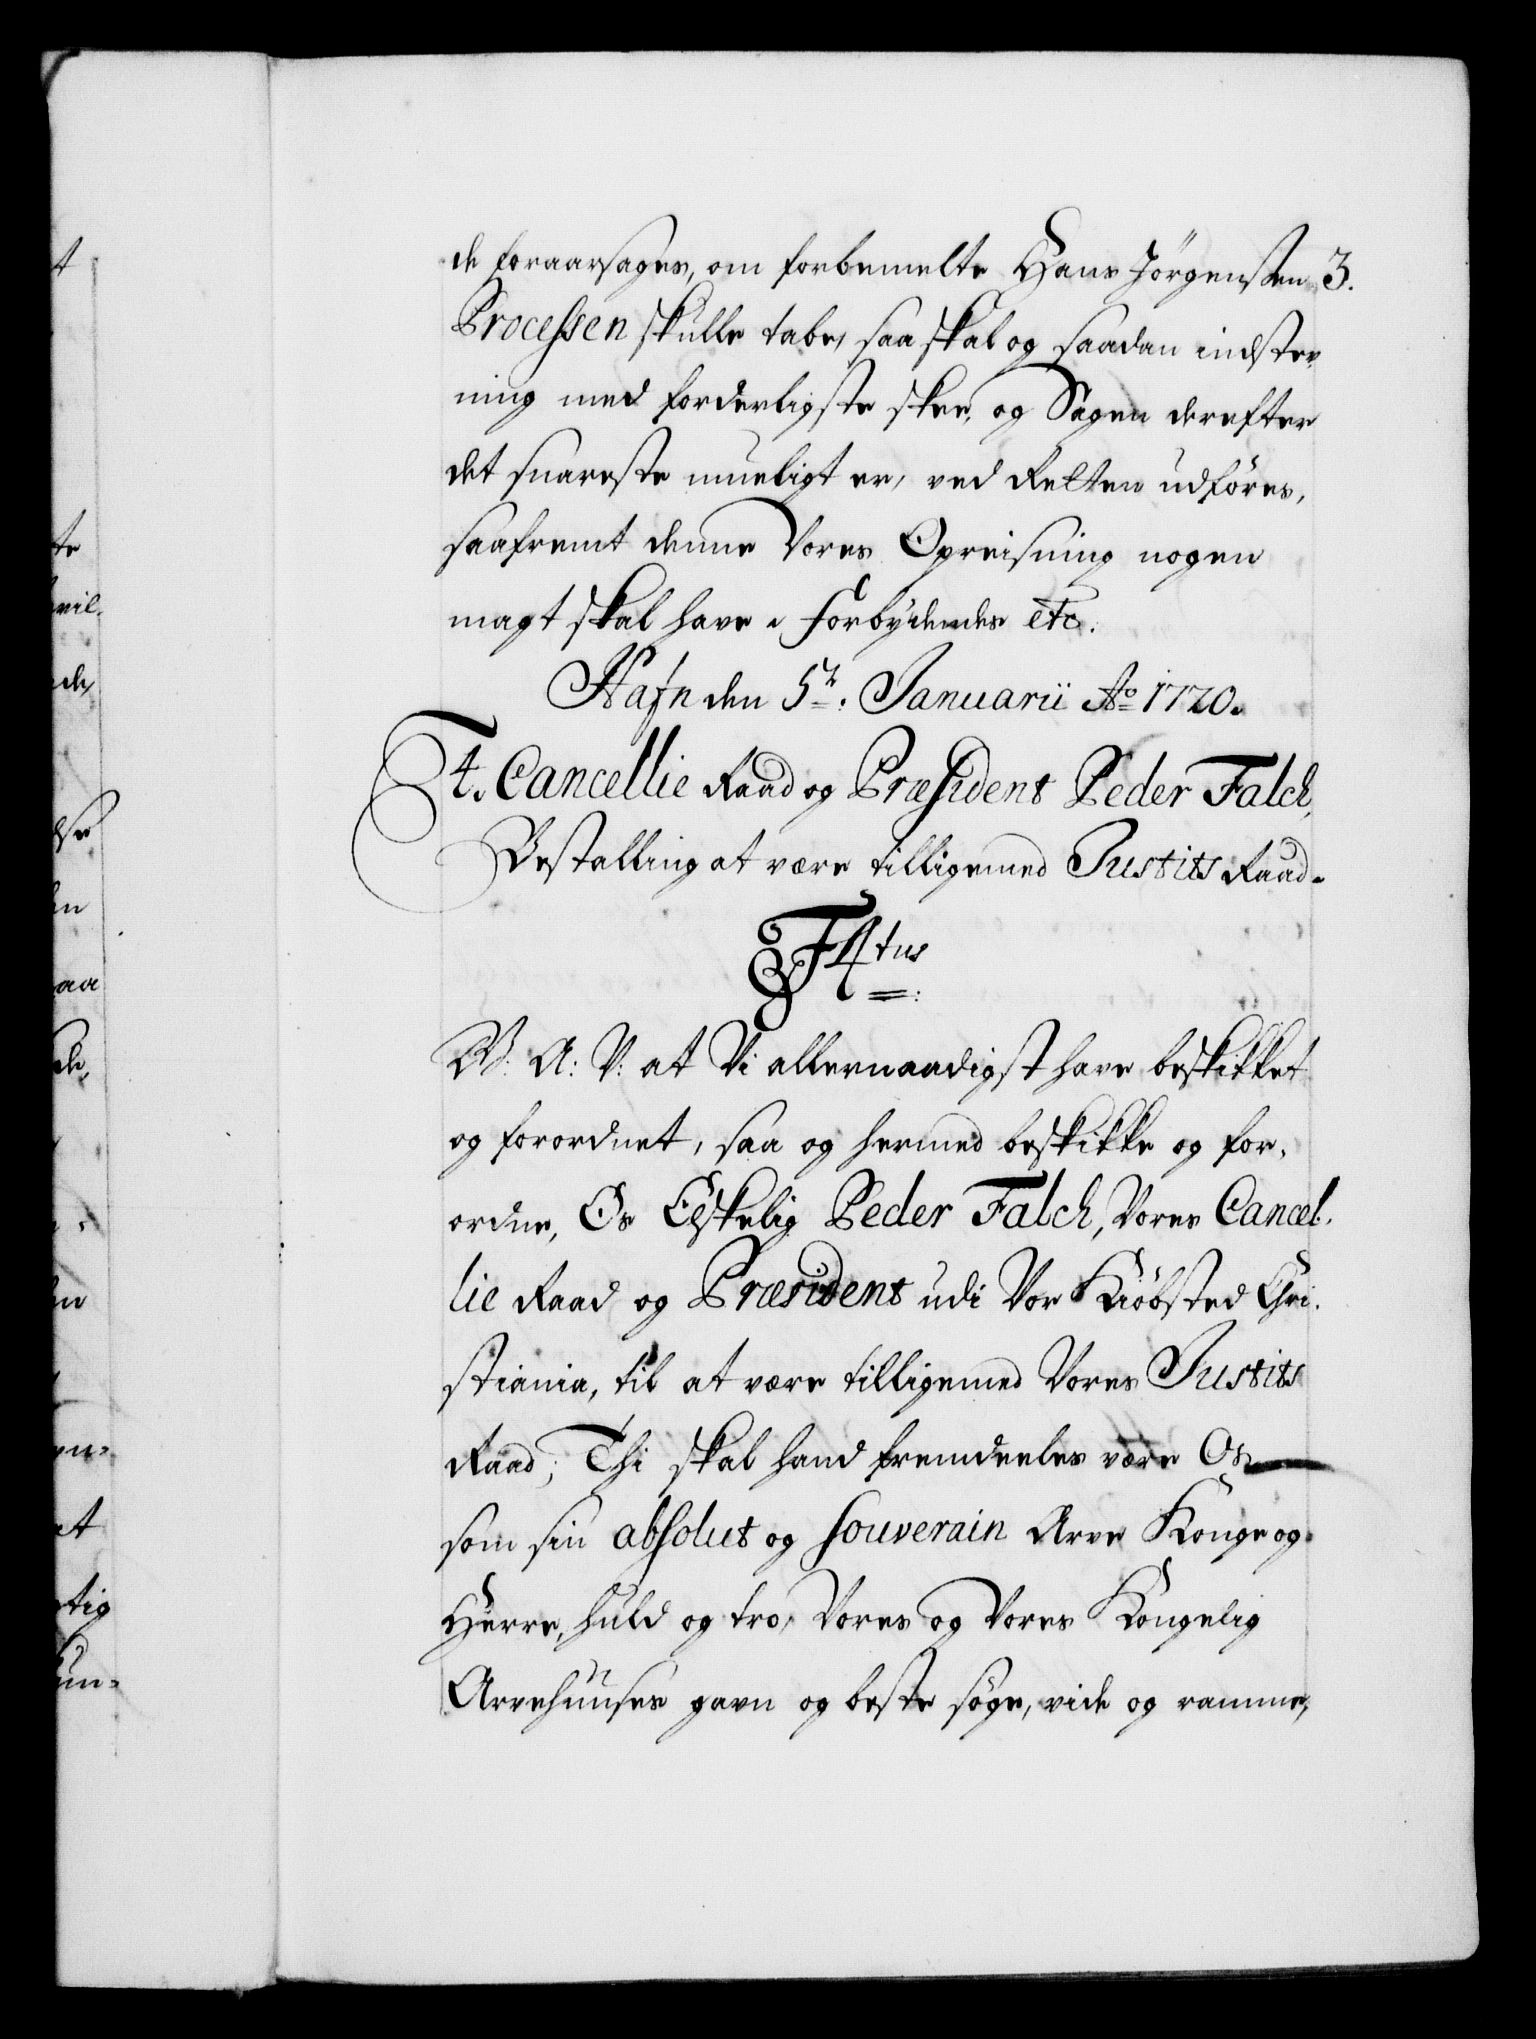 de foraarsages, om forbemelte Hans Jörgensen 3.
Processen skulle tabe, saa skal og saadan indstev,
ning med forderligste skee, og Sagen derefter
det snareste mueligt er, ved Retten udföres,
saafremt denne Vores Opreisning nogen
magt skal have. Forbydendes etc.
Hafn den 5t. Januarii Ao 1720.
4. Cancellie Raad og Præsident Peder Falch,
Bestalling at være tilligemed Justits Raad.
F4tus
W: A: V: at Vi allernaadigst have beskikket
og forordnet, saa og hermed beskikke og for,
ordne, Os Elskelig Peder Falch, Vores Cancel,
lie Raad og Præsident udi Vor Kiöbsted Chri,
stiania, til at være tilligemed Vores Justits
Raad; Thi skal hand fremdeeles være Os
som sin absolut og souverain Arve Konge og
Herre, huld og tro, Vores og Vores Kongelig
Arvehuuses gavn og beste söge, vide og ramme,